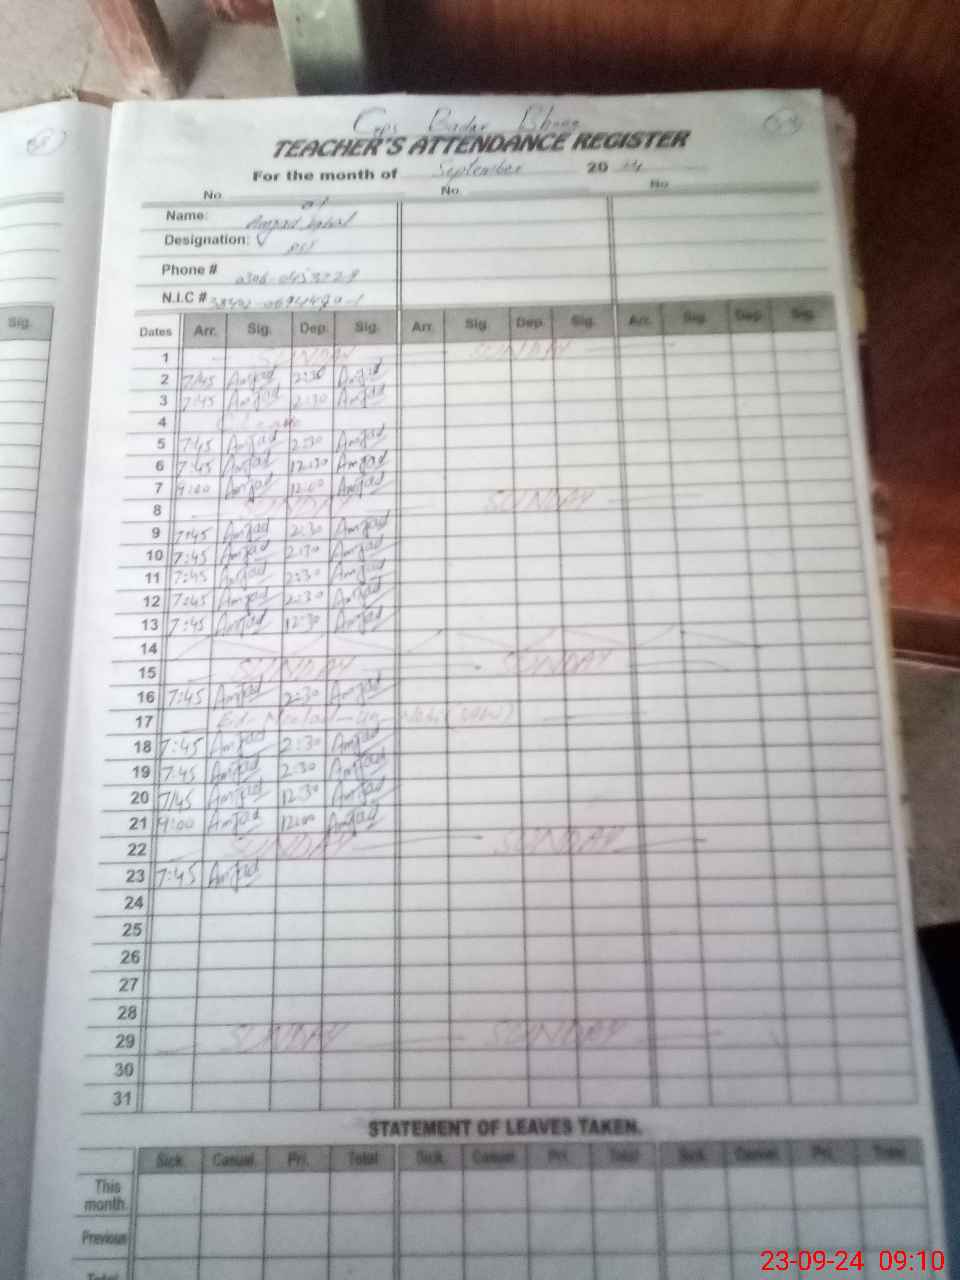 Badar
TEACHER'S ATTENDANCE REGISTER
For the month of September 20 24
No No No
Name: Amjad
Designation:
Phone #
N.I.C #
Sig.
Dates Arr. Sig. Dep. Sig. Arr. Sig. Dep. Sig. Arr. Sig. Dep. Sig.
1 SUNDAY SUNDAY
2 7:45 Amjad 2:30 Amjad
3 7:45 Amjad 2:30 Amjad
4
5 7:45 Amjad 2:30 Amjad
6 7:45 Amjad 12:30 Amjad
7 9:00 Amjad 12:00 Amjad
8 SUNDAY SUNDAY
9 7:45 Amjad 2:30 Amjad
10 7:45 Amjad 2:30 Amjad
11 7:45 Amjad 2:30 Amjad
12 7:45 Amjad 2:30 Amjad
13 7:45 Amjad 12:30 Amjad
14
15 SUNDAY SUNDAY
16 7:45 Amjad 2:30 Amjad
17 Eid- Meelad-un-Nabi (SAW)
18 7:45 Amjad 2:30 Amjad
19 7:45 Amjad 2:30 Amjad
20 7:45 Amjad 12:30 Amjad
21 9:00 Amjad 12:00 Amjad
22 SUNDAY SUNDAY
23 7:45 Amjad
24
25
26
27
28
29 SUNDAY SUNDAY
30
31
STATEMENT OF LEAVES TAKEN.
Sick. Casual. Pri. Total Sick. Casual Pri. Total Sick. Casual. Pri. Total
This month.
Previous
Total
23-09-24 09:10